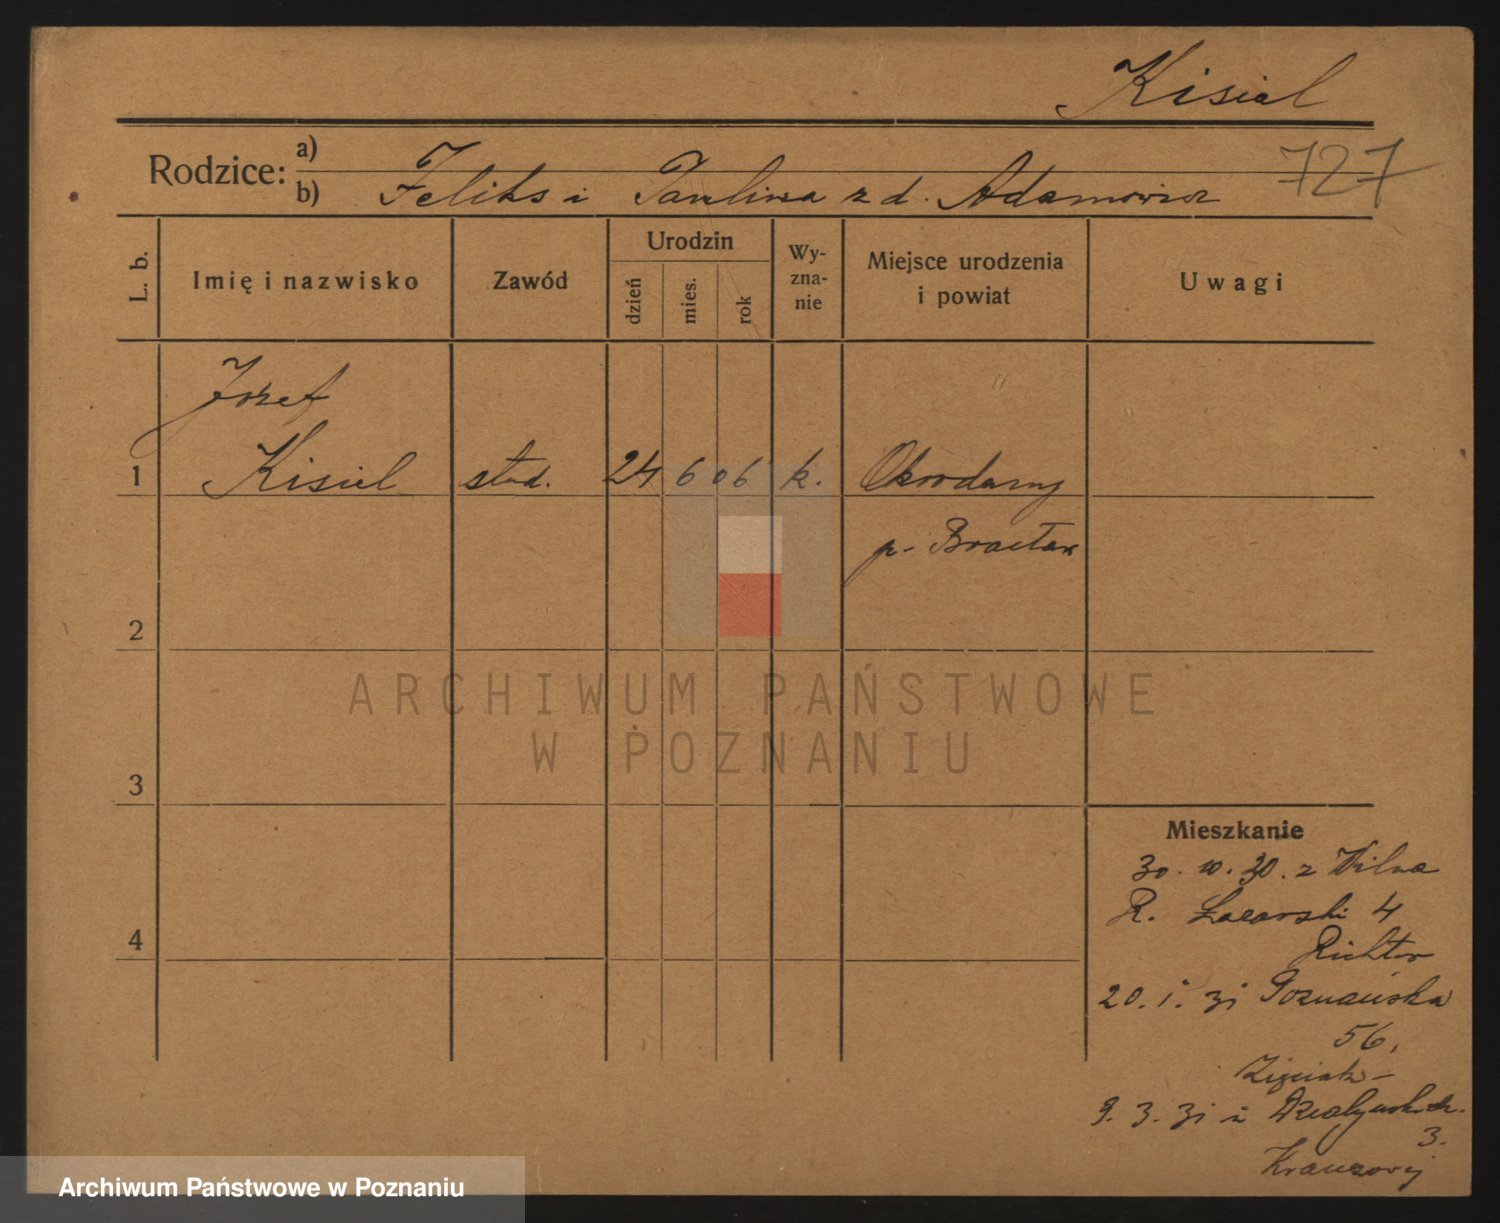 Kisiel
Rodzice: a)
b) Feliks i Paulina z d. Adamowicz 727
L. b. Imię i nazwisko Zawód Urodzin dzień mies. rok Wy-zna-nie Miejsce urodzenia i powiat Uwagi
Józef
1 Kisiel stud. 24 6 06 k.
p. Bracław
2
3
4
Mieszkanie
30. 10. 30. z Wilna
R. Łazarski 4
Richter
20. 1. 31 Poznańska
56,
9. 3. 31 ú Działyńskich
3.
ARCHIWUM PAŃSTWOWE
W POZNANIU
Archiwum Państwowe w Poznaniu